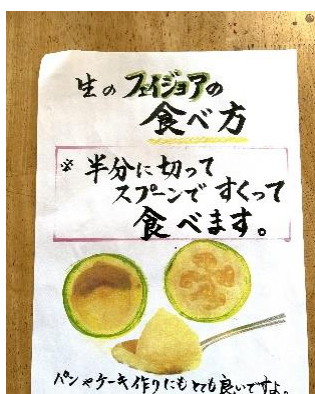 生のフェイジョアの
食べ方
※半分に切って
スプーンですくって
食べます。
パンやケーキ作りにもとても良いですよ。